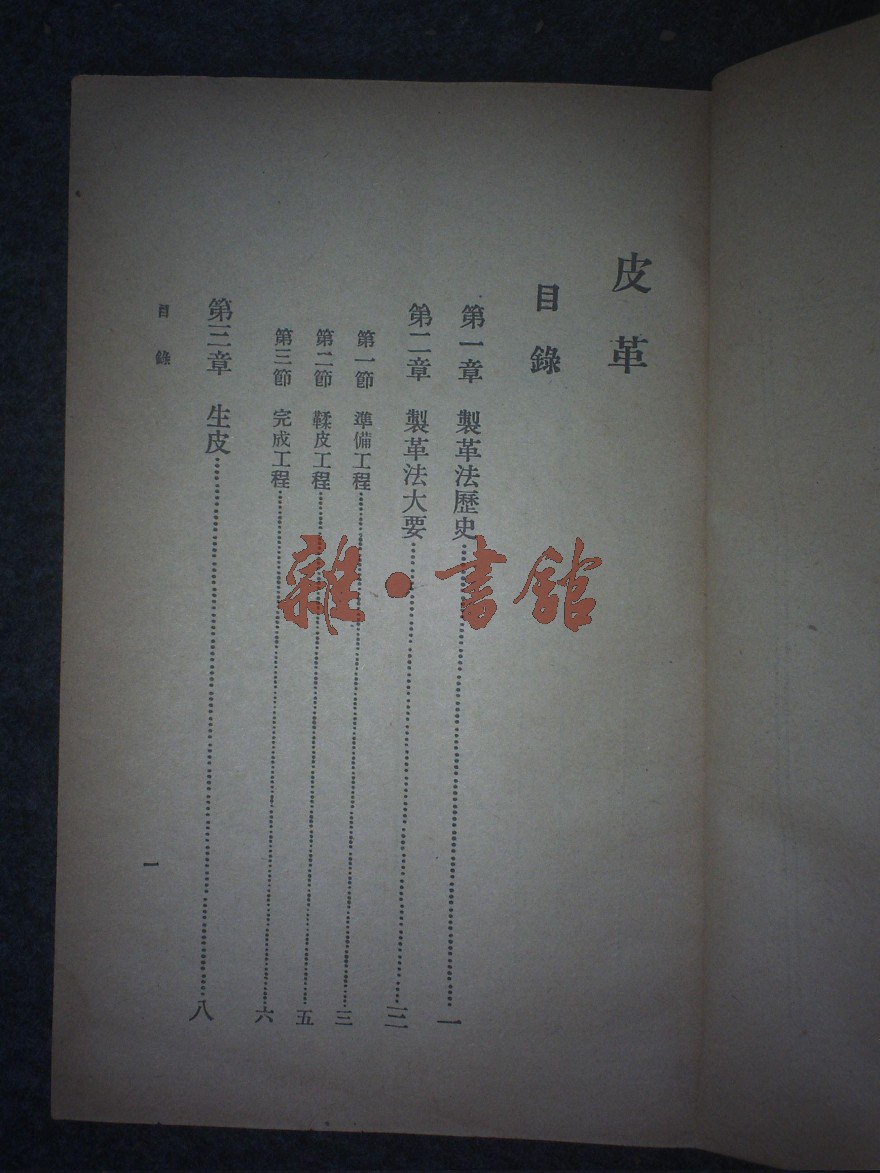 皮革
目錄
第一章 製革法歷史……一
第二章 製革法大要……三
第一節 準備工程……三
第二節 鞣皮工程……五
第三節 完成工程……六
第三章 生皮……八
目錄
一
雜·書館